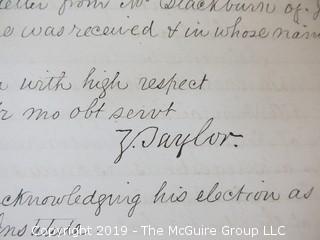 letter from Mr Blackburn of
was received & in whose nam
with high respect
mo obt servt
Z. Taylor.
cknowledging his election as
Copyright 2019 - The McGuire Group LLC